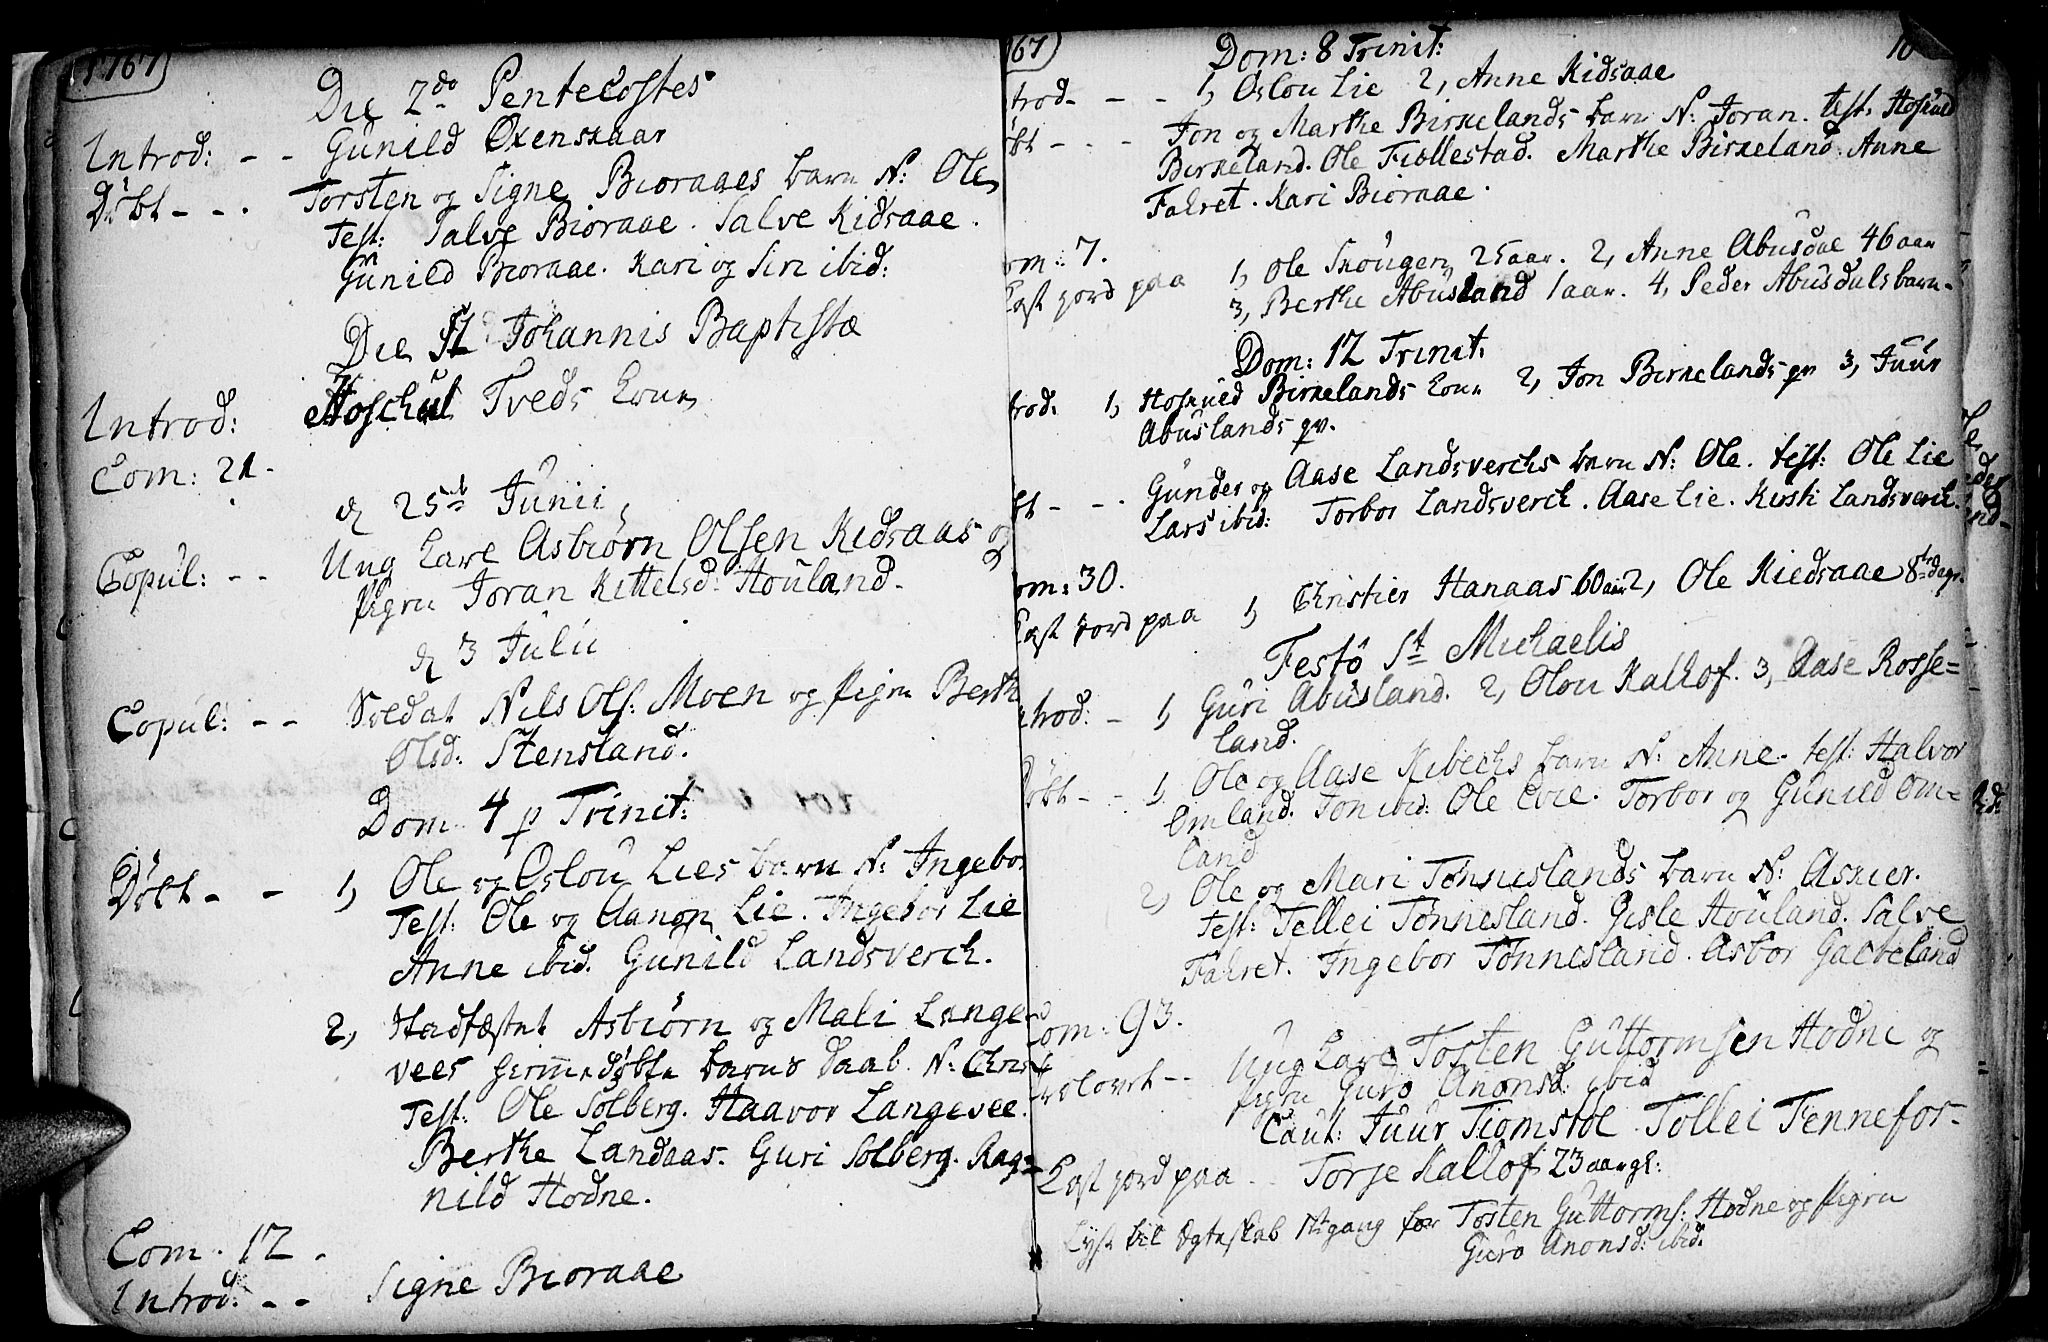 1767
Die 2do Pentecostes
Introd: - - Gunild Oxenskaar
Döbt - - . Torsten og Signe Bioraaes barn N: Ole
Test: Salve Bioraae. Salve Kidsaae.
Gunild Bioraae. Kari og Siri ibid:
Die St Johannis Baptistæ
Introd: Hoschul Tveds kone
Com: 21.
d 25de Junii
Copul: - - Ung Karl Asbiörn Olsen Kidsaas og
Pigen Joran Kittelsd: Houland.
d 3 Julii
Copul: - - Soldat Nils Ols: Moen og Pigen Berth
Olsd: Stensland.
Dom. 4 p Trinit:
Döbt - - 1, Ole og Oslou Lies barn N: Ingebor
Test: Ole og Aanon Lie. Ingebor Lie
Anne ibid. Gunild Landsverck.
2, Stadfæstet Asbiörn og Mali Lange
vees hiemmedöbte barns daab. N: Chris
Test: Ole Solberg. Haavor Langevee.
Berthe Landaas. Guri Solberg. Rag=
nild Hodne.
Com. 12.
Introd: - - Signe Bioraae
67) 10
Dom: 8 Trinit:
trod - - 1, Oslou Lie 2, Anne Kidsaae
öbt - - - Jon og Marthe Birkelands barn N: Joran. test: Hoskuld
Birkeland. Ole Fiöllestad. Marthe Birkeland. Anne
Falret. Kari Bioraae.
om: 7.
Cast jord paa 1, Ole Skougen 25 aar. 2, Anne Abusdal 46 aar
3, Berthe Abusland 1 aar. 4, Peder Abusdals barn.
Dom: 12 Trinit:
trod: 1, Hoskuld Birkelands kone 2, Jon Birkelands qv 3, Juur
Abuslands qv.
bt - - . Gunder og Aase Landsvercks barn N: Ole. test: Ole Lie
Lars ibid: Torbor Landsverck. Aase Lie. Kirsti Landsverck.
om: 30.
Cast jord paa 1, Christier Hanaas 60 aar 2, Ole Kiedsaae 8te dage.
Festo St Michaelis
trod: - 1, Guri Abusland. 2, Olou Kallof. 3, Aase Rosse=
land.
Döbt - - 1, Ole og Aase Kibechs barn N: Anne. test: Halvor
Omland. Jon ibid: Ole Evie. Torbor og Gunild Om=
land
2, Ole og Mari Tönneslands barn N: Asker.
Test: Tellei Tönnesland. Gisle Houland. Salve
Falret. Ingebor Tönnesland. Asbor Gaebeland
Com: 93.
Trolovet - - Ung Karl Tosten Guttormsen Hodne og
Pigen Guro Anonsd: ibid
Caut: Juur Tiomstöl Tollei Tennefos.
Cast jord paa. Torje Kallof 23 aar gl:
Lyst til Egteskab 1te gang for Tosten Guttorms: Hodne og Pigen
Guro Anonsd: ibid.